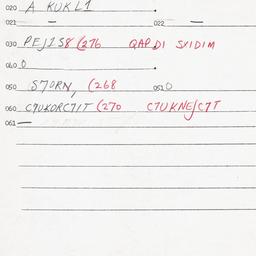 020 A KUKLI .
021 — 022 —
030 PEJIS8 (276 QAPDI SVIDIM
040 O
050 S7ORN, (268 051 O
060 C7UKORC7IT (270 C7UKNEJC7T
061 —